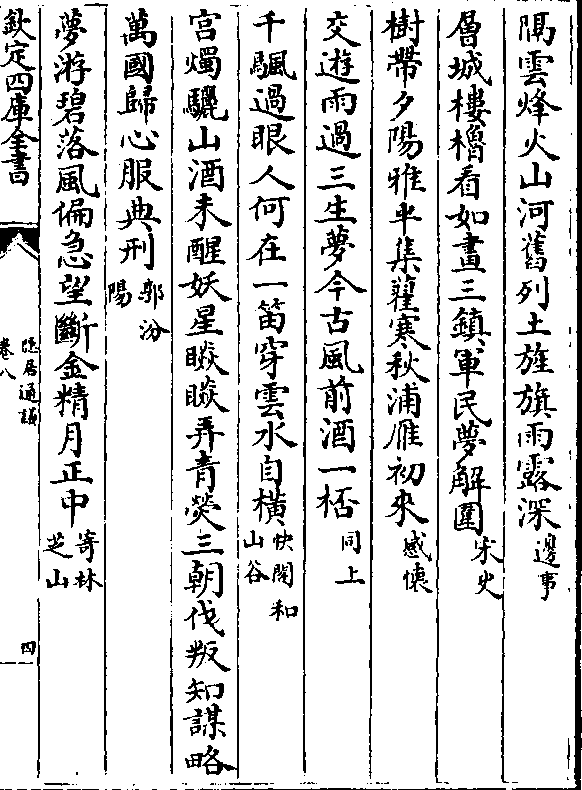 閫雲烽火山河舊列土旌旗雨露深邊事
層城樓櫓看如畫三鎮軍民夢解圍宋史
樹帶夕陽雅半集蘿寒秋浦雁初來感懷
交遊雨過三生夢今古風前酒一桮同上
千颿過眼人何在一笛穿雲水自横快閣和山谷
宫燭驪山酒未醒妖星睒睒弄青熒三朝伐叛知謀略
萬國歸心服典刑郭汾陽
夢游碧落風偏急望斷金精月正中寄林芝山
欽定四庫全書
隠居通議
卷八
四